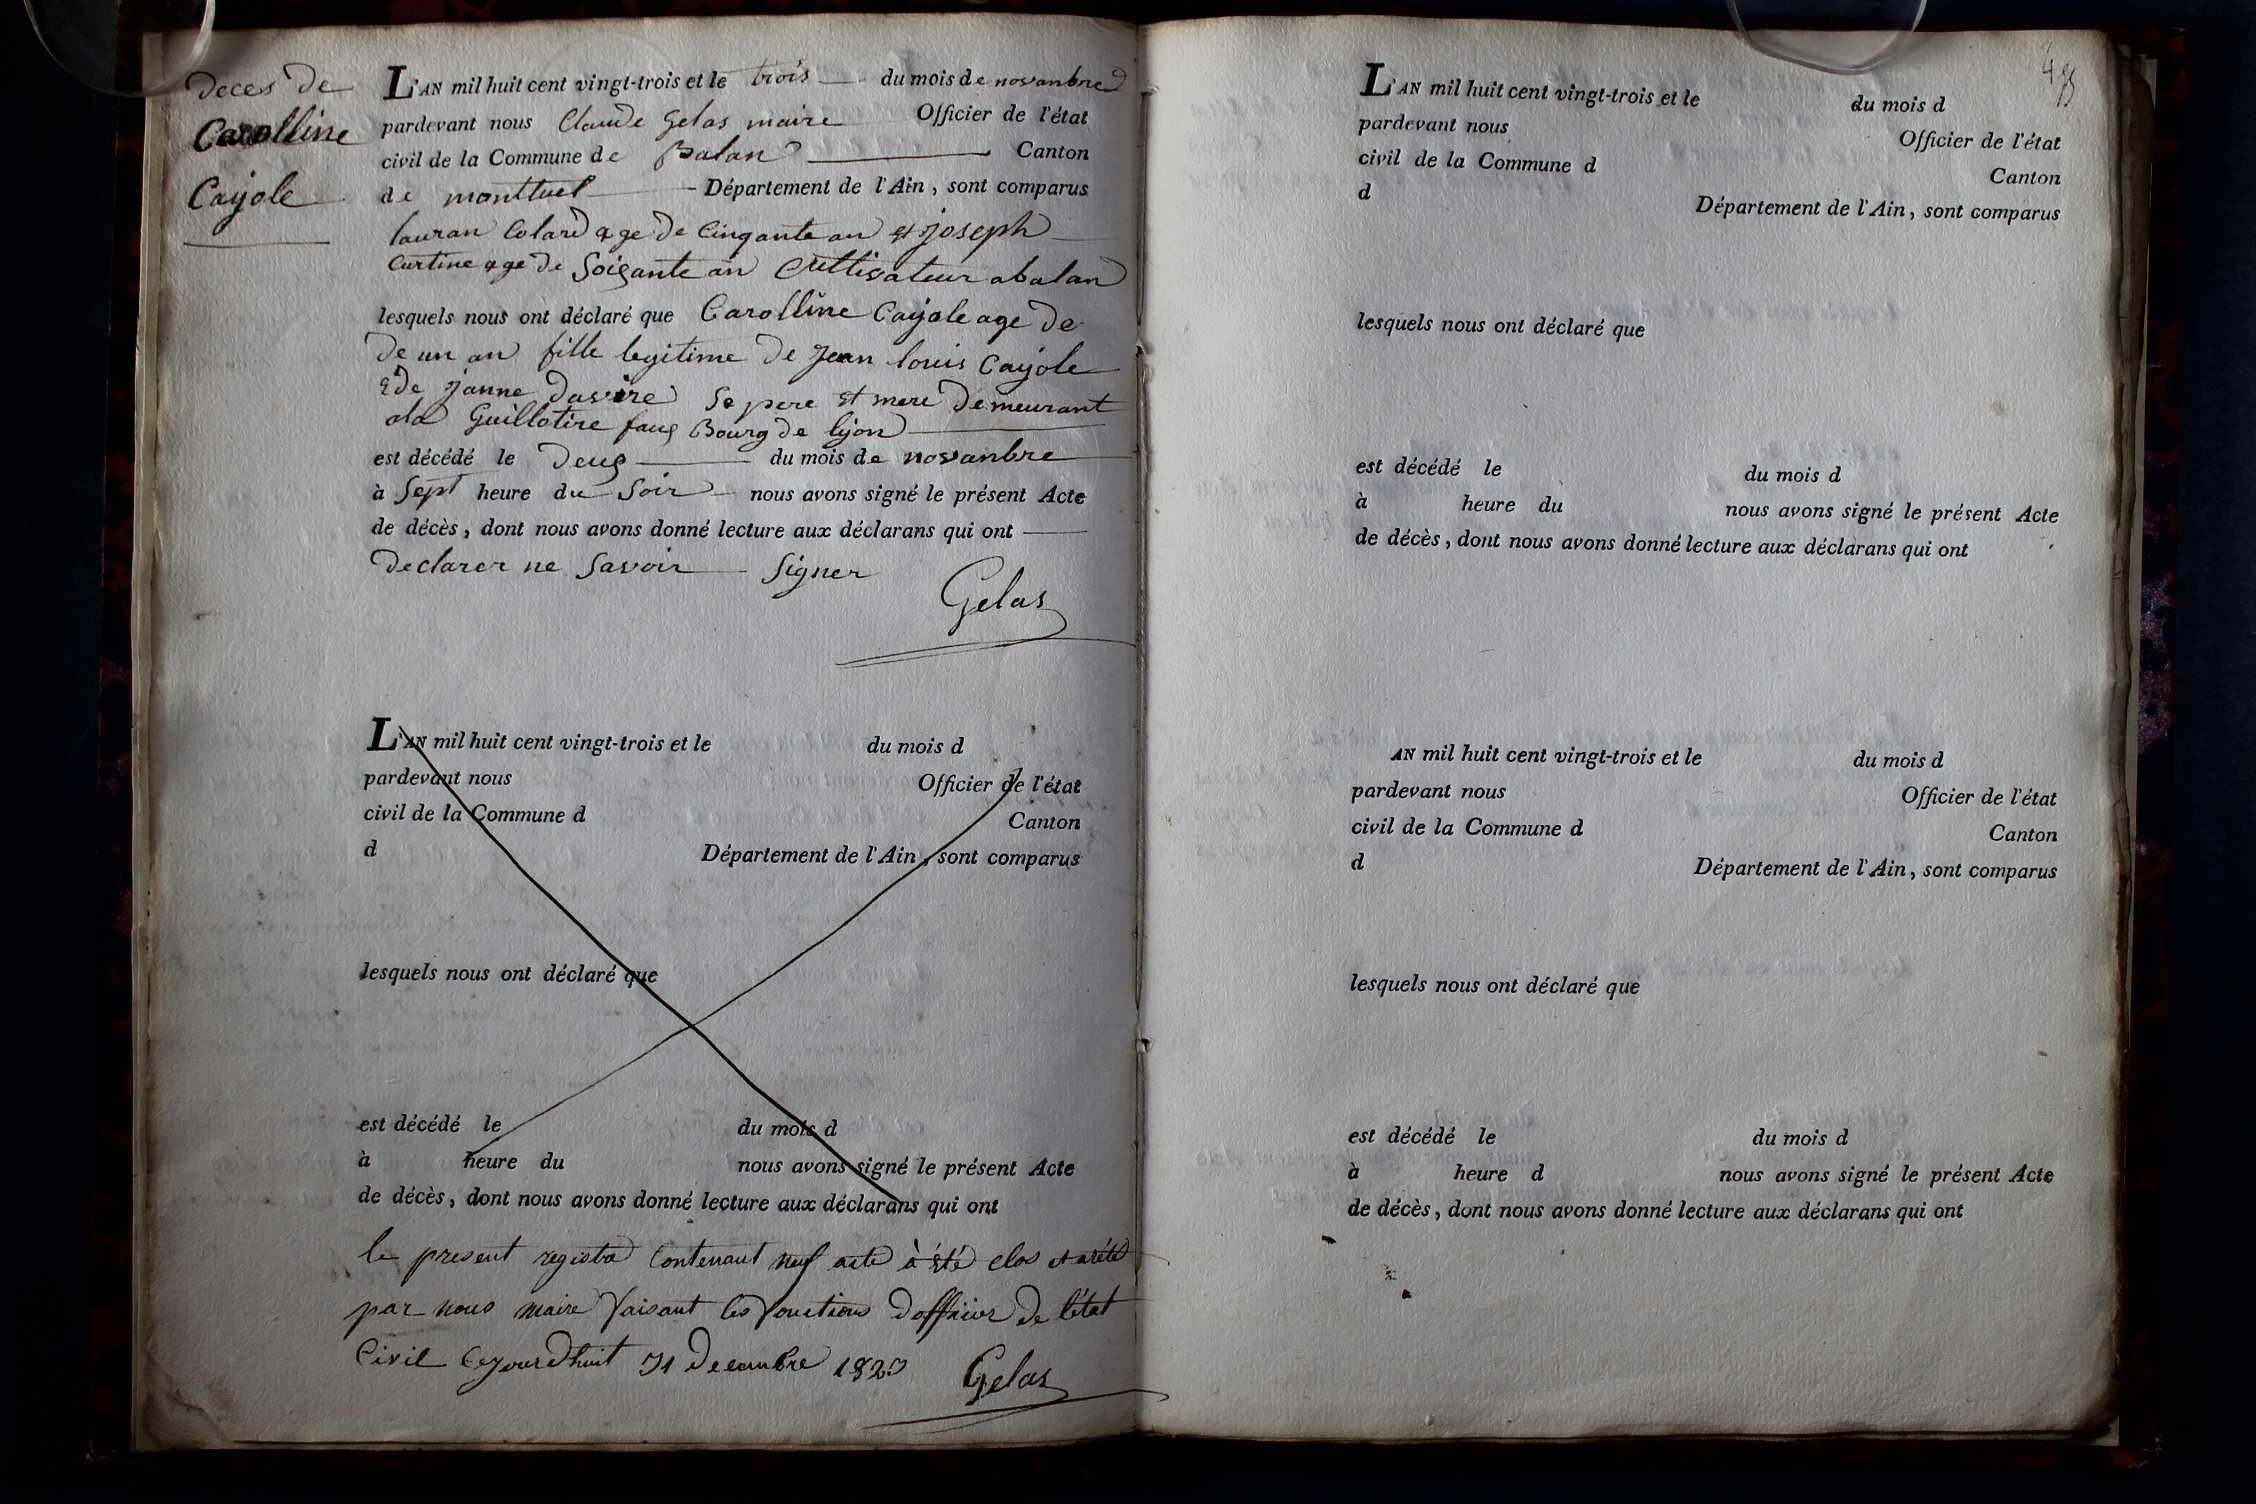 deces de
Carolline
Cayole
L'AN mil huit cent vingt-trois et le trois du mois de novanbre
pardevant nous Claude Gelas maire Officier de l'état
civil de la Commune de Balan Canton
de montluel Département de l'Ain, sont comparus
lauran Colard age de cinqante an et joseph
Curtine age de soisante an Cultivateur abalan
lesquels nous ont déclaré que Carolline Cayole age de
de un an fille legitime de Jean louis Cayole
de janne Se pere et mere demeurant
ala Guillotire faus Bourg de lyon
est décédé le deus du mois de novanbre
à sept heure du Soir nous avons signé le présent Acte
de décès, dont nous avons donné lecture aux déclarans qui ont
declarer ne savoir signer
Gelas
L'AN mil huit cent vingt-trois et le du mois d
pardevant nous Officier de l'état
civil de la Commune d Canton
d Département de l'Ain, sont comparus
lesquels nous ont déclaré que
est décédé le du mois d
à heure du nous avons signé le présent Acte
de décès, dont nous avons donné lecture aux déclarans qui ont
le present registre contenant neuf acte à été clos et arété
par nous maire faisant les fonctions d'officier de l'état
Civil Cejourdhuit 31 Decembre 1823 Gelas
L'AN mil huit cent vingt-trois et le du mois d
pardevant nous Officier de l'état
civil de la Commune d Canton
d Département de l'Ain, sont comparus
lesquels nous ont déclaré que
est décédé le du mois d
à heure du nous avons signé le présent Acte
de décès, dont nous avons donné lecture aux déclarans qui ont
AN mil huit cent vingt-trois et le du mois d
pardevant nous Officier de l'état
civil de la Commune d Canton
d Département de l'Ain, sont comparus
lesquels nous ont déclaré que
est décédé le du mois d
à heure d nous avons signé le présent Acte
de décès, dont nous avons donné lecture aux déclarans qui ont